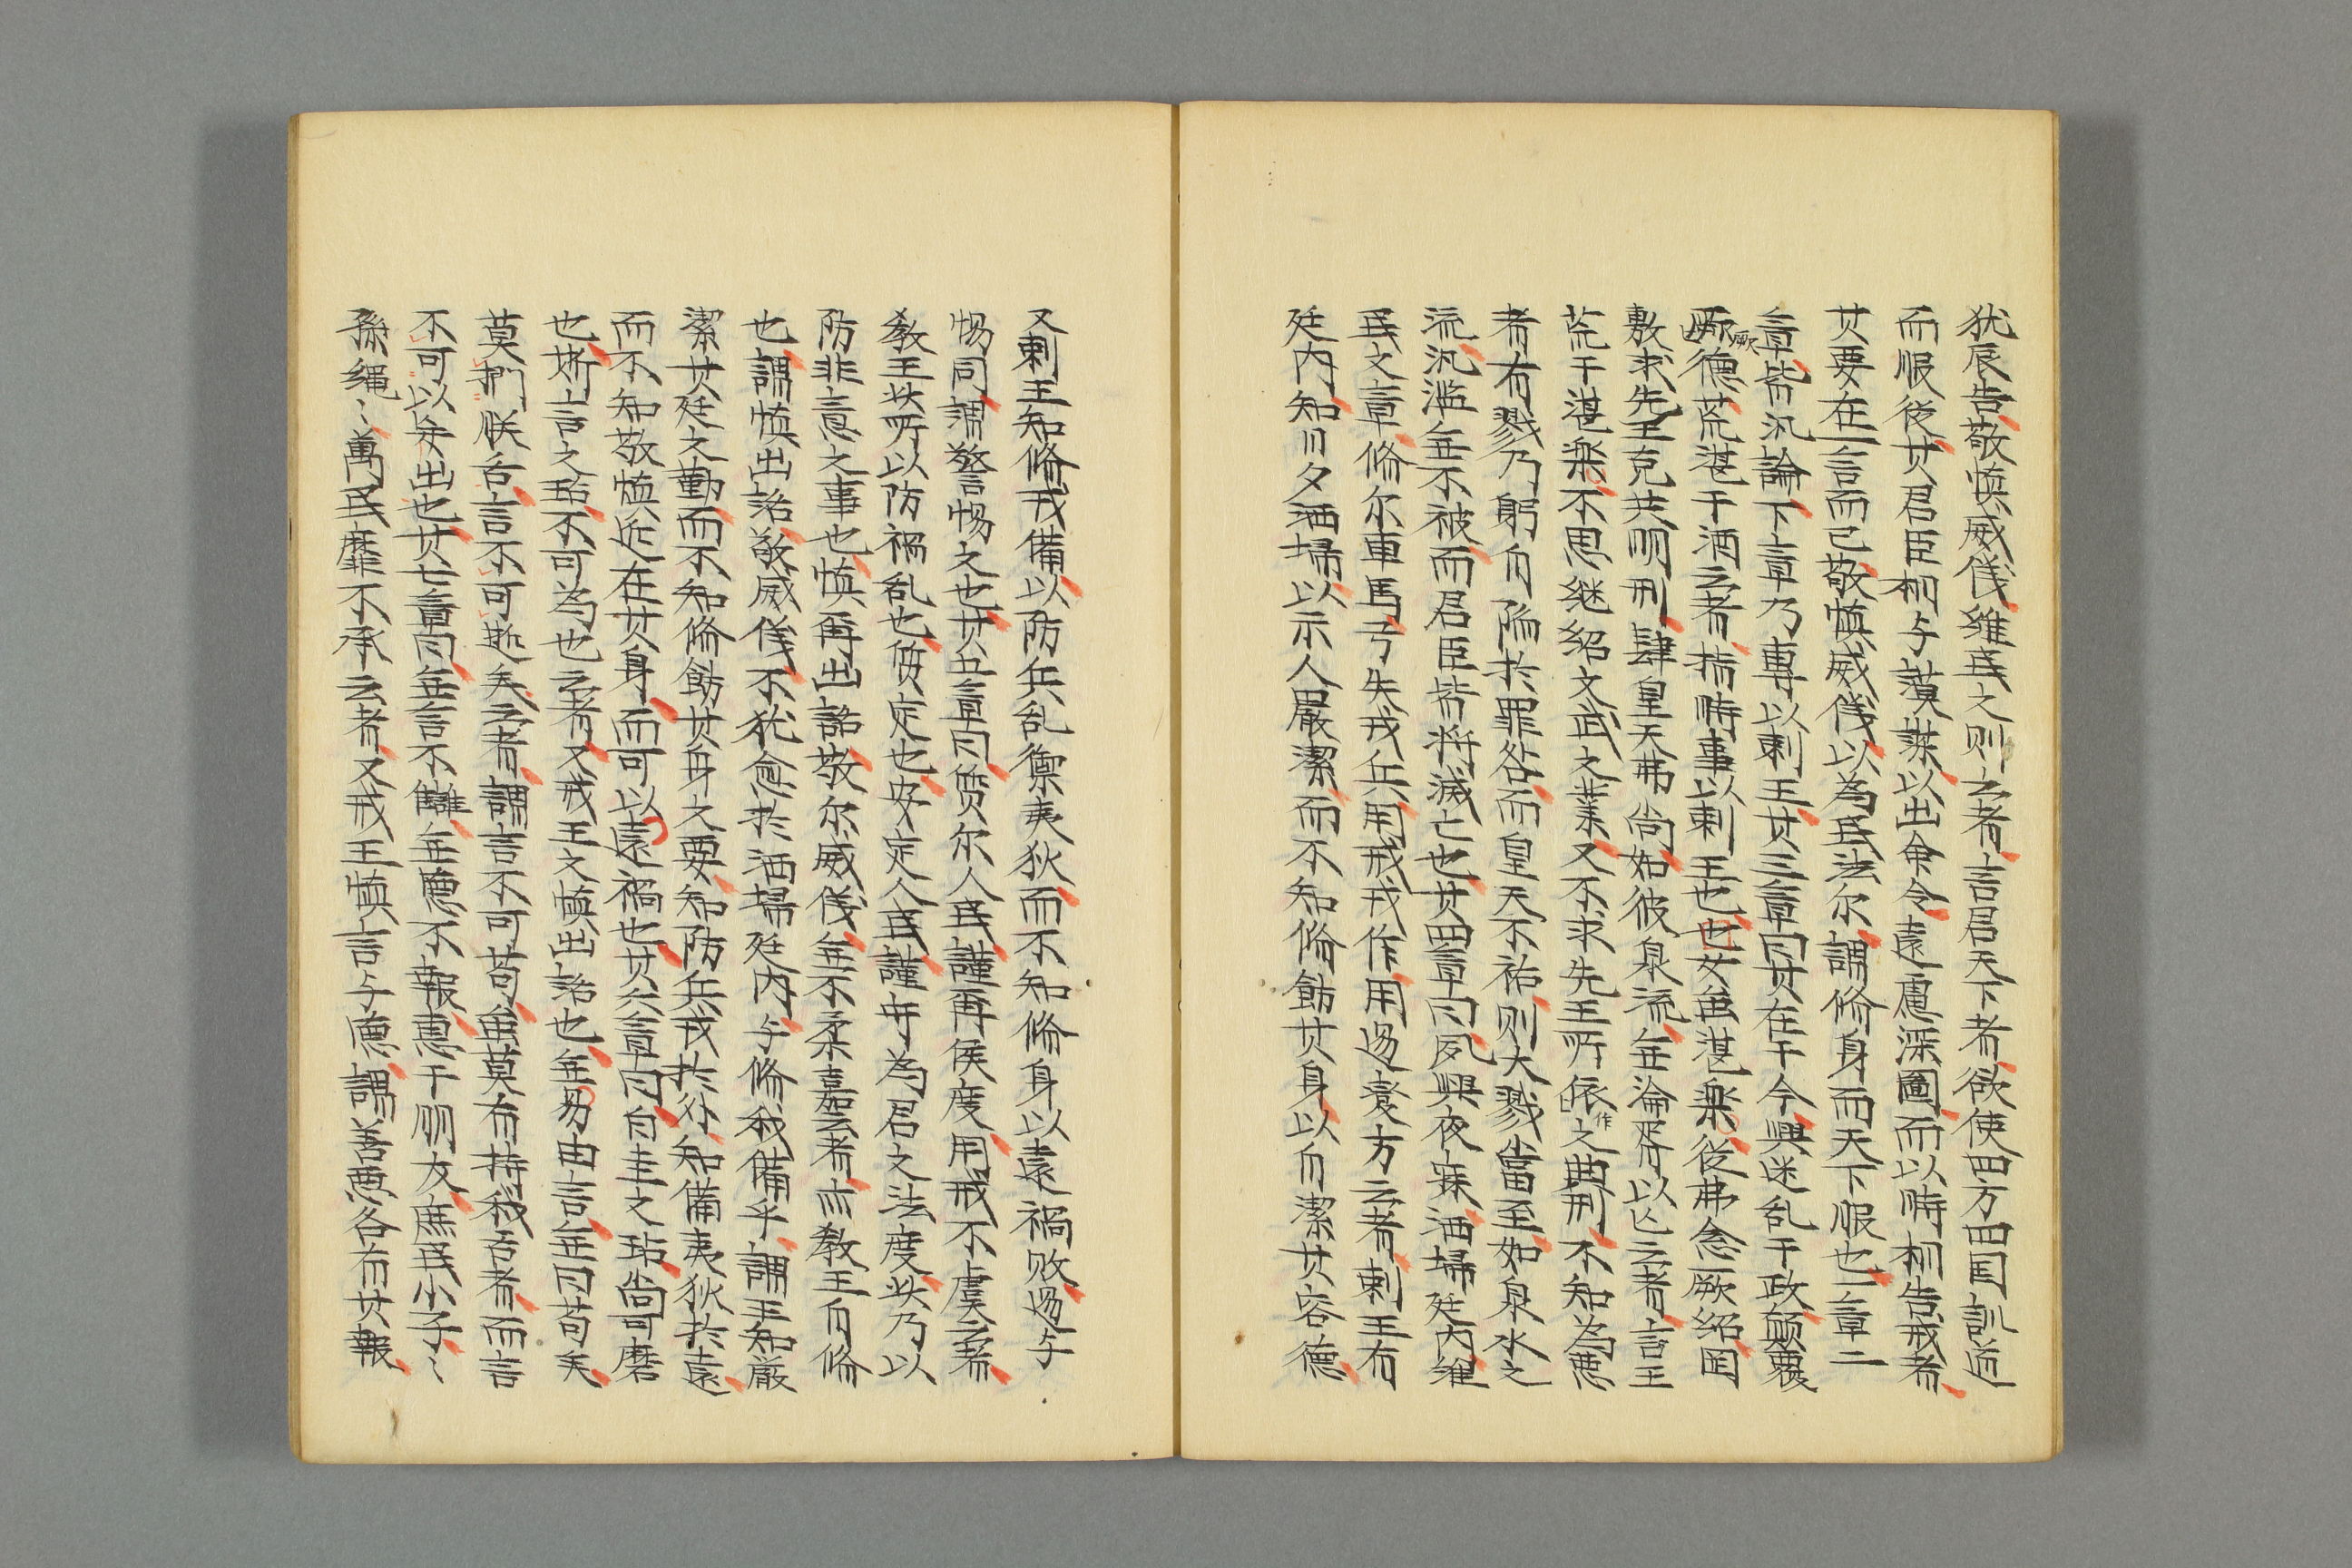 犹辰告敬慎威儀維民之則云者言君天下者欲使四方四国訓廸
而服従其君臣相与謨謀以出命令遠慮深圖而以時相告戒者
其要在一言而已敬慎威儀以為民法尔謂修身而天下服也一章二
章皆汎論下章乃専以刺王其三章曰其在于今興迷乱于政顛覆
厥德荒湛于酒云者指時事以刺王也也女雖湛楽従弗念厥紹罔
敷求先王克共明刑肆皇天弗尚如彼泉流無淪胥以亡云者言王
荒于湛楽不思継紹文武之業又不求先王所作之典刑不知為悪
者有戮乃躬自陥於罪咎而皇天不祐則大戮当至如泉水之
流汎濫無不被而君臣皆将滅亡也其四章曰夙興夜寐洒掃廷内維
民之章修尔車馬弓矢戎兵用戒戎作用逷蠻方云者刺王有
廷内知日夕洒掃以示人嚴潔而不知脩飭其身以自潔其容德
又刺王知脩戎備以防兵乱禦夷狄而不知脩身以遠禍敗逷与
惕同謂警惕之也其五章曰質尔人民謹再侯度用戒不虞云者
教王此所以防禍乱也質定也安定人民謹 為君之法度此乃以
防非意之事也慎再出話敬尔威儀無不柔嘉云者亦教王自脩
也謂慎出話敬威儀不犹愈於洒掃廷内与脩我備乎謂王知厳
潔其廷之勤而不知脩飭其身之要知防兵戎於外知備夷狄於遠
而不知敬慎近在其身而可以遠禍也其六章曰白圭之玷尚可磨
也斯言之玷不可為也云者又戒王之慎出話也無易由言無曰苟矣
莫捫朕舌言不可逝矣云者謂言不可苟無莫有持我舌者而言
不可以 出也其七章曰無言不讎無德不報恵于朋友庶民小子〻
孫繩〻萬民靡不承云者又戒王慎言与德謂善悪各有其報